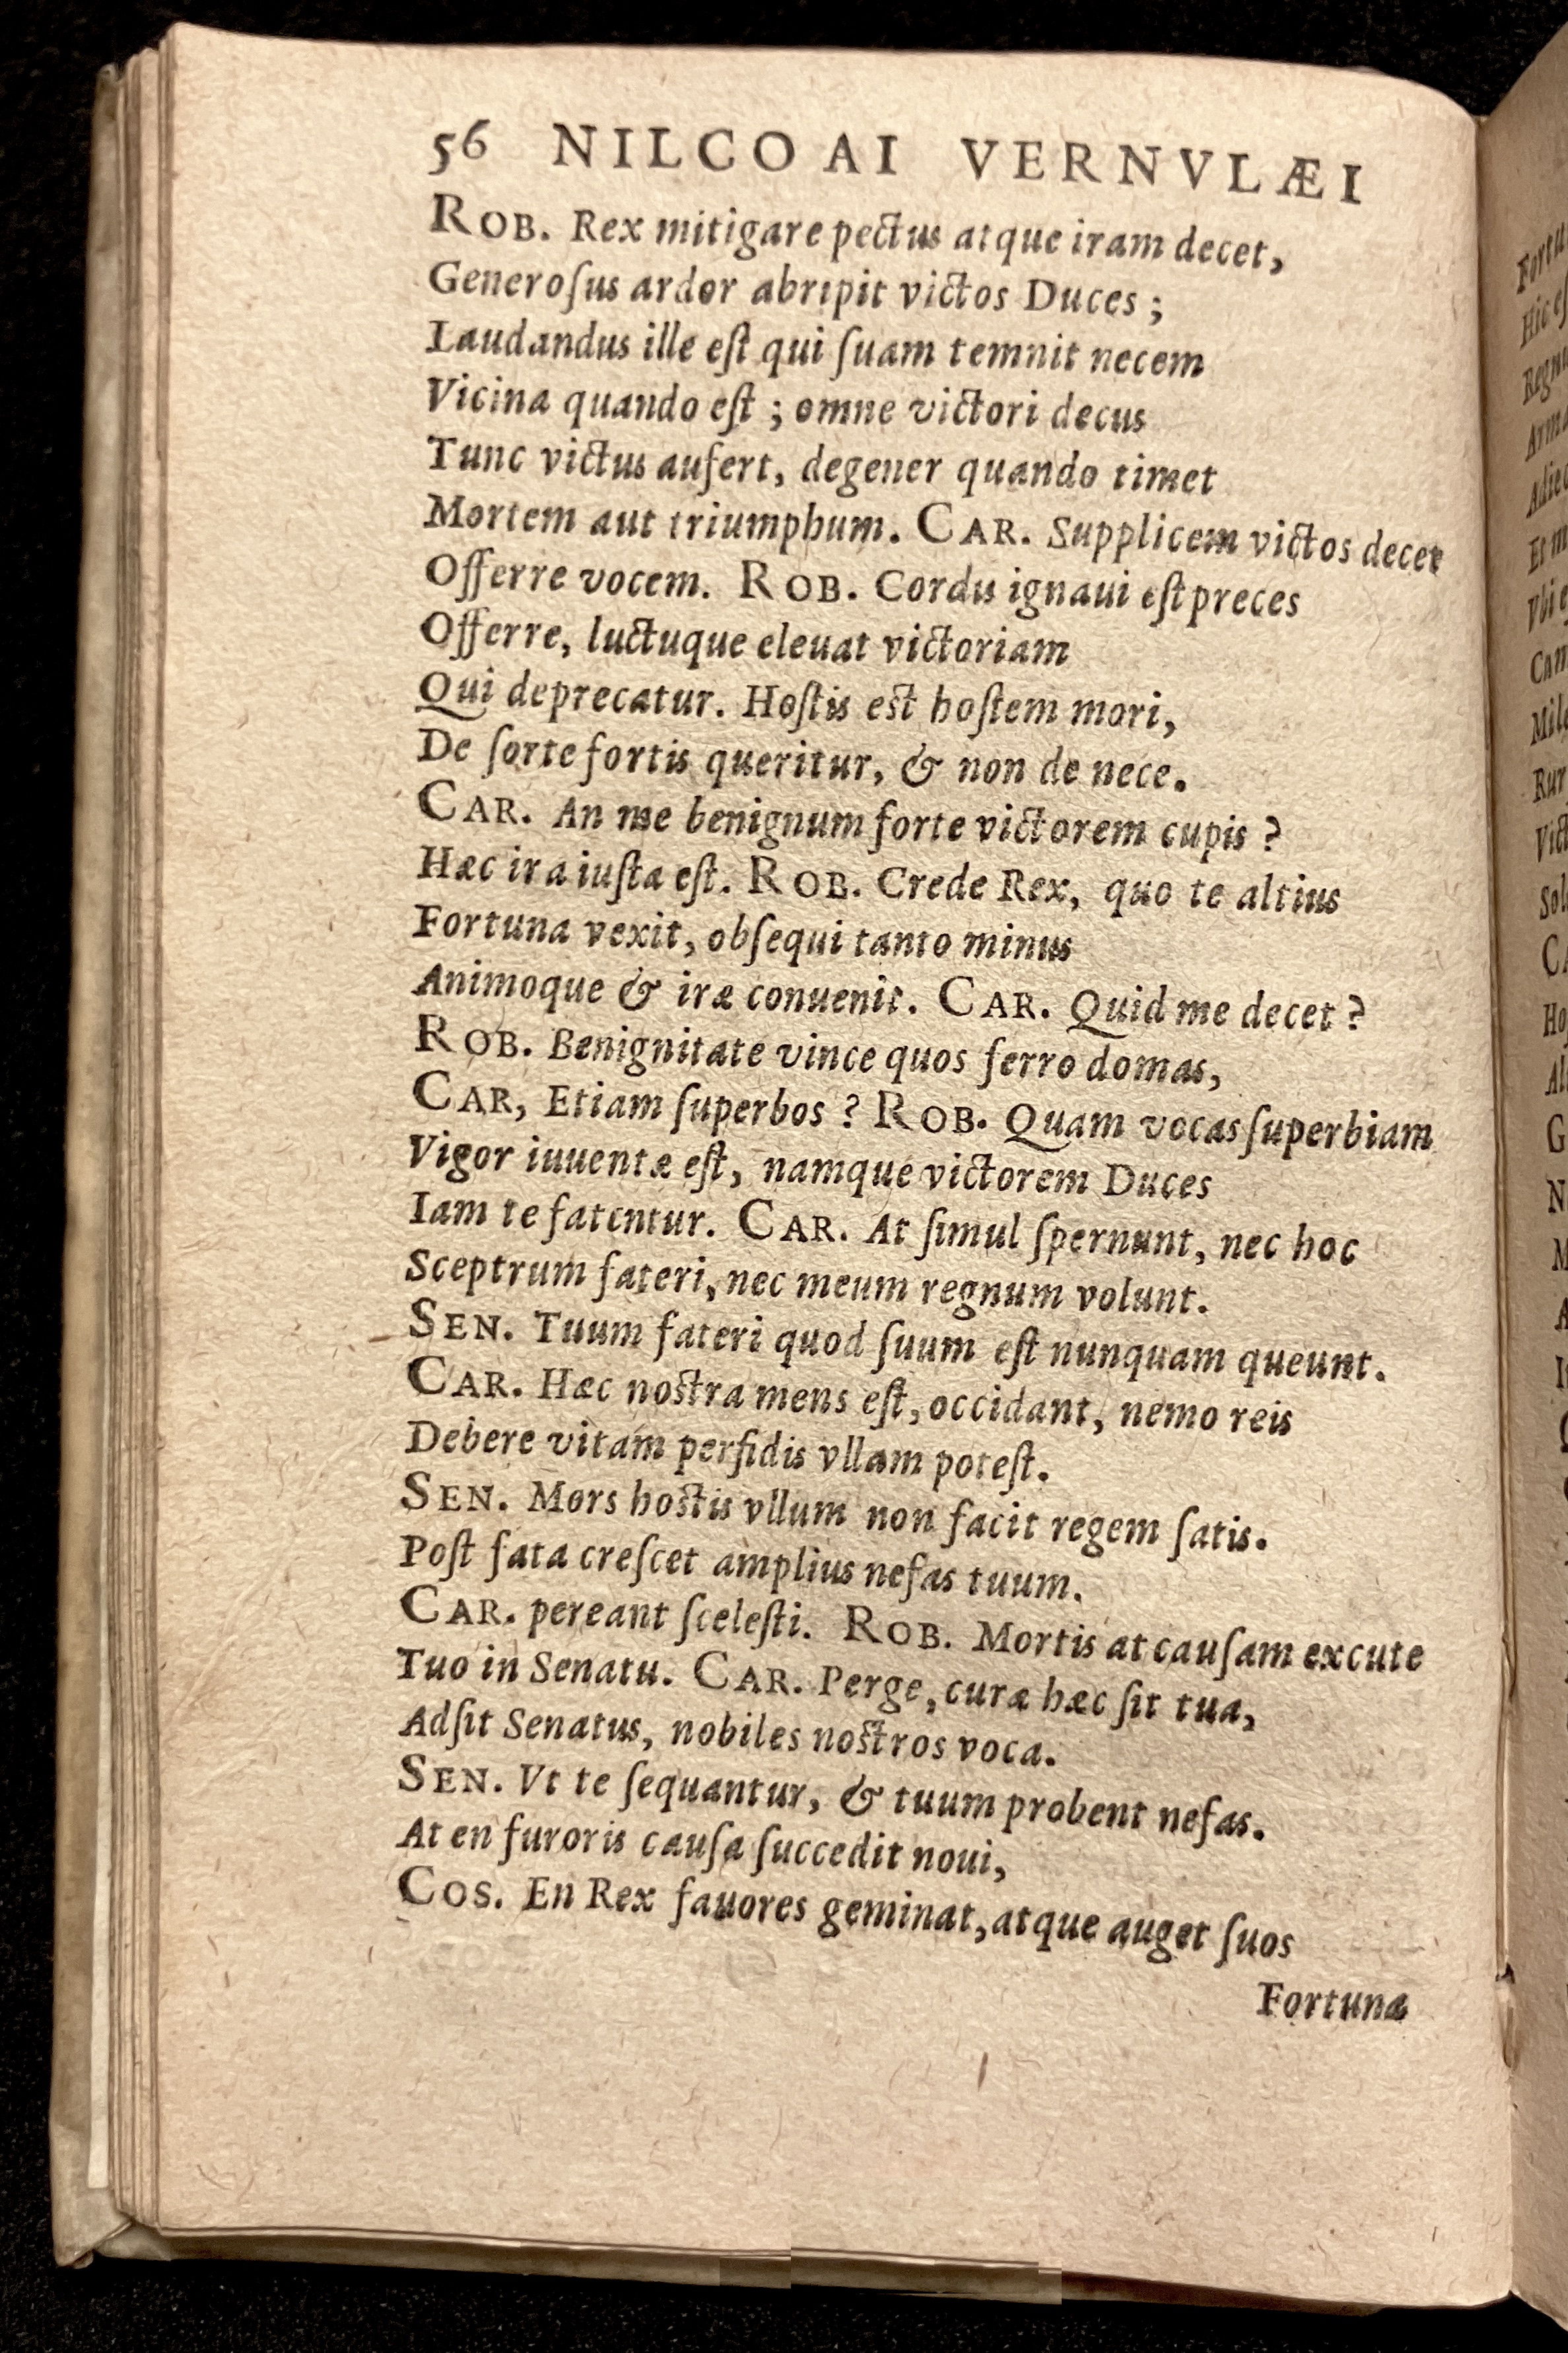 56 NILCOAI VERNVLÆI
ROB. Rex mitigare pectus atque iram decet,
Generoſus ardor abripit victos Duces ;
Laudandus ille eſt qui ſuam temnit necem
Vicina quando eſt ; omne victori decus
Tunc victus aufert, degener quando timet
Mortem aut triumphum. CAR. Supplicem victos decet
Offerre vocem. ROB. Cordis ignaui eſt preces
Offerre, luctuque eleuat victoriam
Qui deprecatur. Hoſtis eſt hoſtem mori,
De ſorte fortis queritur, & non de nece.
CAR. An me benignum forte victorem cupis ?
Hæc ira iuſta eſt. ROB. Crede Rex, quo te altius
Fortuna vexit, obſequi tanto minus
Animoque & iræ conuenit. CAR. Quid me decet ?
ROB. Benignitate vince quos ferro domas,
CAR, Etiam ſuperbos ? ROB. Quam vocas ſuperbiam
Vigor iuuentæ eſt, namque victorem Duces
Iam te fatentur. CAR. At ſimul ſpernunt, nec hoc
Sceptrum fateri, nec meum regnum volunt.
SEN. Tuum fateri quod ſuum eſt nunquam queunt.
CAR. Hæc noſtra mens eſt, occidant, nemo reis
Debere vitam perfidis vllam poteſt.
SEN. Mors hoſtis vllum non facit regem ſatis.
Poſt fata creſcet amplius nefas tuum.
CAR. pereant ſceleſti. ROB. Mortis at cauſam excute
Tuo in Senatu. CAR. Perge, curæ hæc ſit tua,
Adſit Senatus, nobiles noſtros voca.
SEN. Vt te ſequantur, & tuum probent nefas.
At en furoris cauſa ſuccedit noui,
COS. En Rex fauores geminat, atque auget ſuos
Fortuna